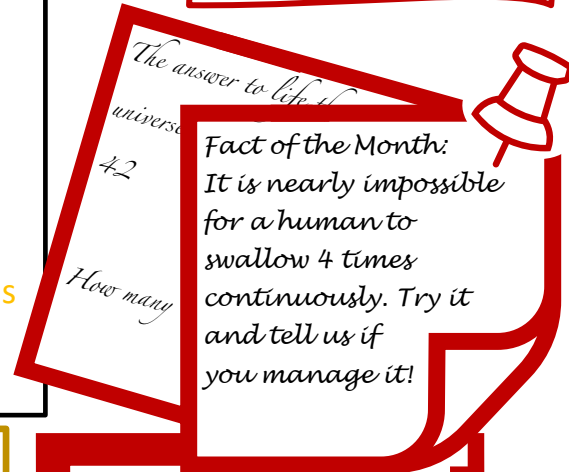 The answer to life
universe
42
How many
Fact of the Month:
It is nearly impossible
for a human to
swallow 4 times
continuously. Try it
and tell us if
you manage it!
s